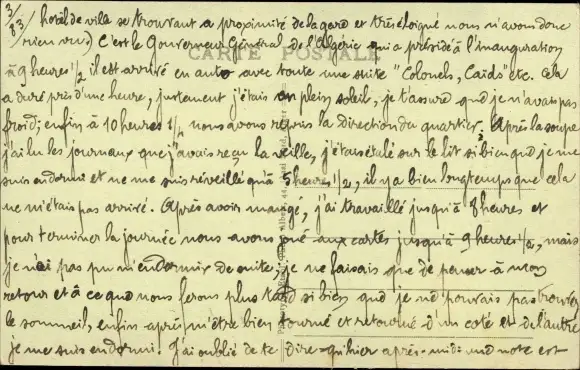 3/83/ hotel de ville se trouvant a proximité de la gare et très éloigné nous n'avons donc
rien vu.) C'est le Gouverneur Général de l'Algérie qui a présidé à l'inauguration
CARTE POSTALE
à 9 heures 1/2 il est arrivé en auto avec toute une suite "Colonels, Caïds etc. Cela
a duré près d'une heure, justement j'étais en plein soleil, je t'assure que je n'avais pas
froid; enfin à 10 heures 1/2 nous avons repris la direction du quartier. Après la soupe
j'ai lu les journaux que j'avais reçu la veille, j'étais étalé sur le lit si bien que je me
suis endormi et ne me suis réveillé qu'à 5 heures 1/2, il y a bien longtemps que cela
ne m'étais pas arrivé. Après avoir mangé, j'ai travaillé jusqu'à 8 heures et
pour terminer la journée nous avons joué aux cartes jusqu'à 9 heures 1/2, mais
je n'ai pas pu m'endormir de suite; je ne faisais que de penser à mon
retour et à ce que nous ferons plus tard si bien que je ne pouvais pas trouver
le sommeil, enfin après m'être bien tourné et retourné d'un coté et de l'autre
je me suis endormi. J'ai oublié de te dire qu'hier après-midi une note est